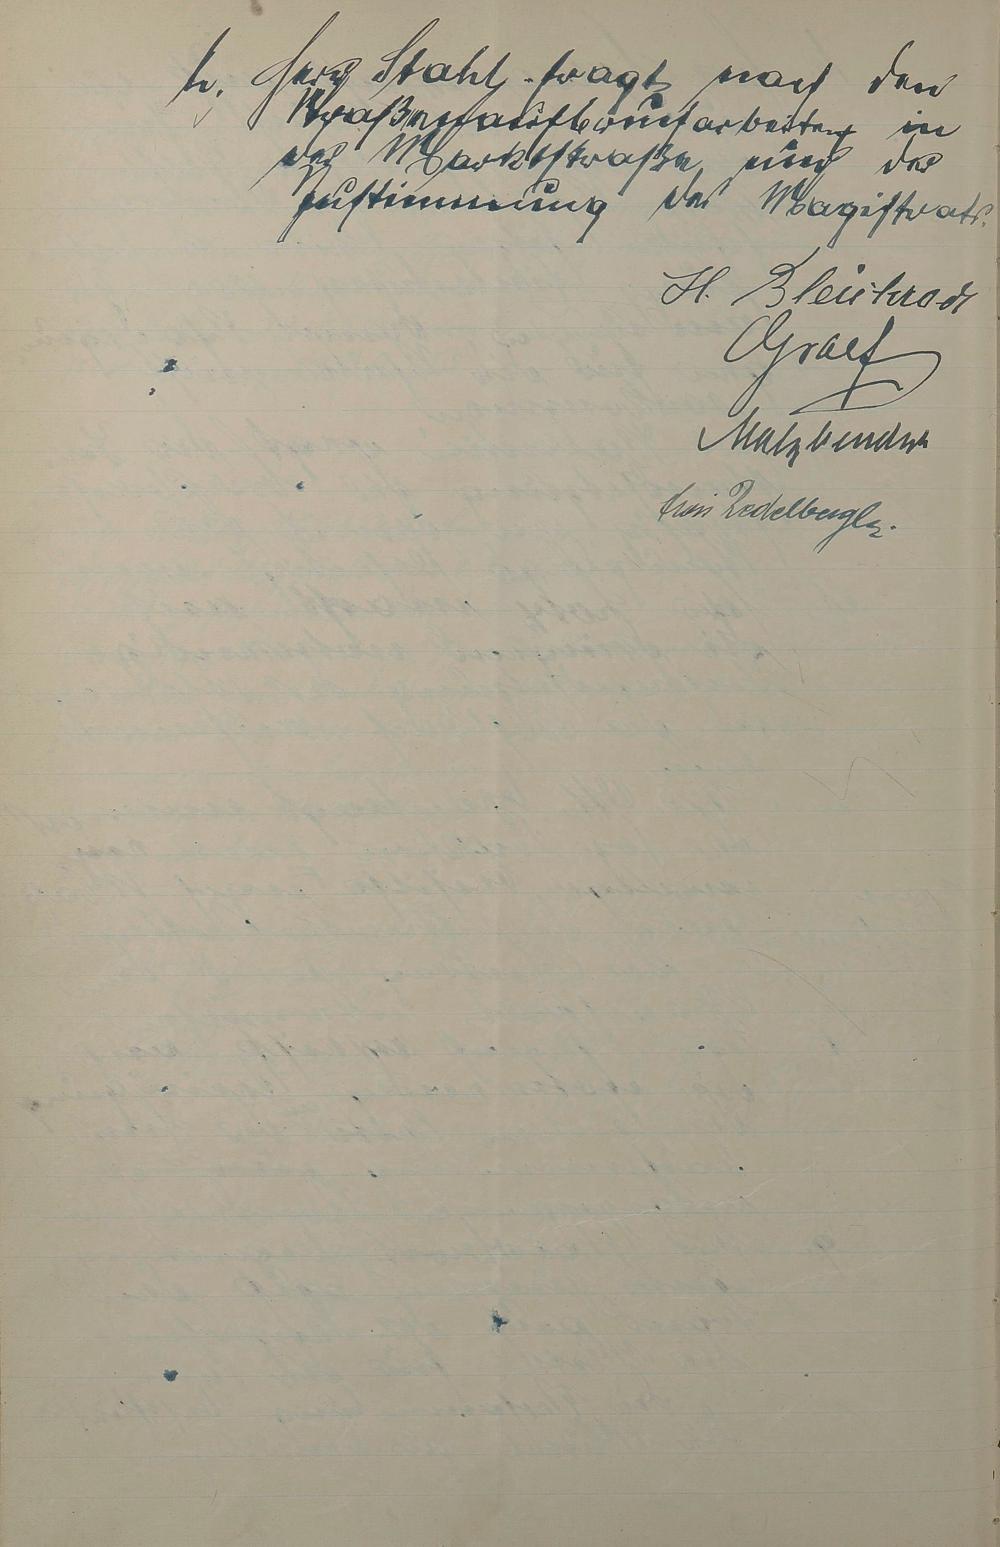 h. Herr Stahl fragt nach den
Straßenaufbrucharbeiten in
der Marktstraße und der
Zustimmung des Magistrats.
H. Bleickrodt
Graef
Malzbender
Redelberger.